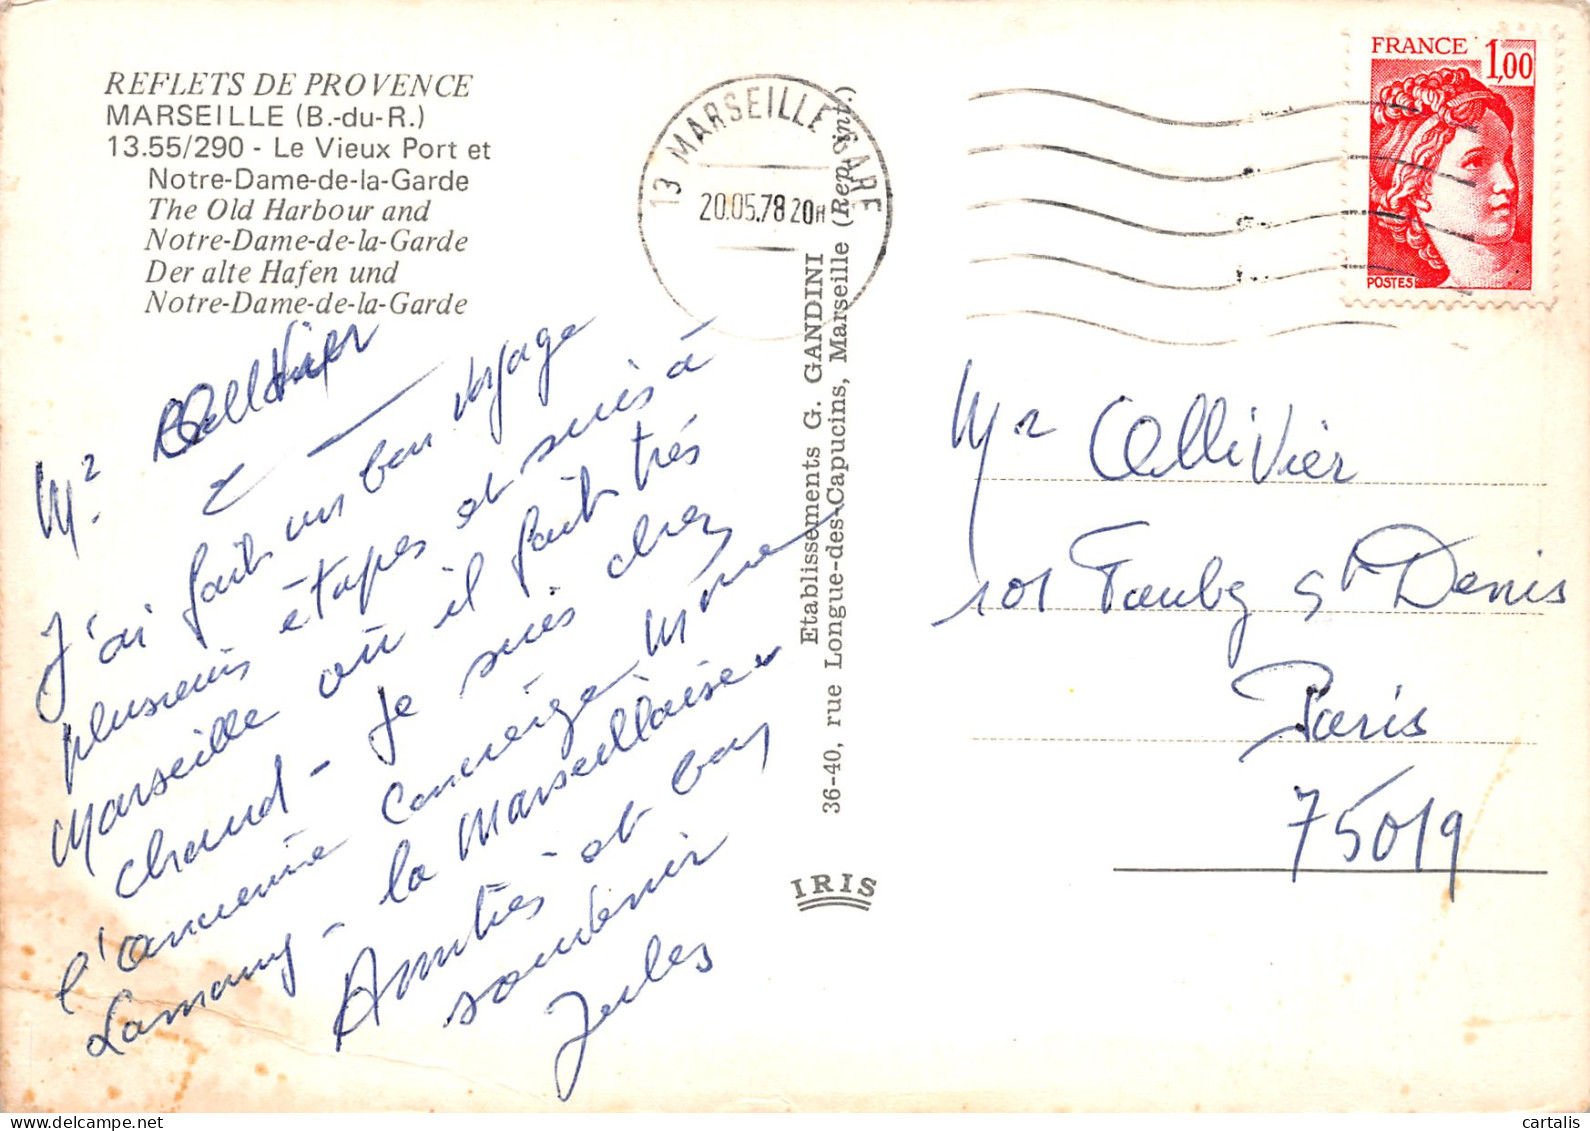 REFLETS DE PROVENCE
MARSEILLE (B.-du-R.)
13.55/290 - Le Vieux Port et
Notre-Dame-de-la-Garde
The Old Harbour and
Notre-Dame-de-la-Garde
Der alte Hafen und
Notre-Dame-de-la-Garde
Mr. Ollivier
J'ai fait un bon voyage
plusieurs étapes et suis à
Marseille où il fait très
chaud - Je suis chez
l'ancienne concierge Mme
Lamany - la Marseillaise
Amitiés et bon
souvenir
Jules
13 MARSEILLE GARE
20.05.78 20H
Etablissements G. GANDINI
36-40, rue Longue-des-Capucins, Marseille (Rep. int.)
IRIS
FRANCE 1,00
POSTES
Mr Ollivier
101 Faubg St Denis
Paris
75019
cartalis